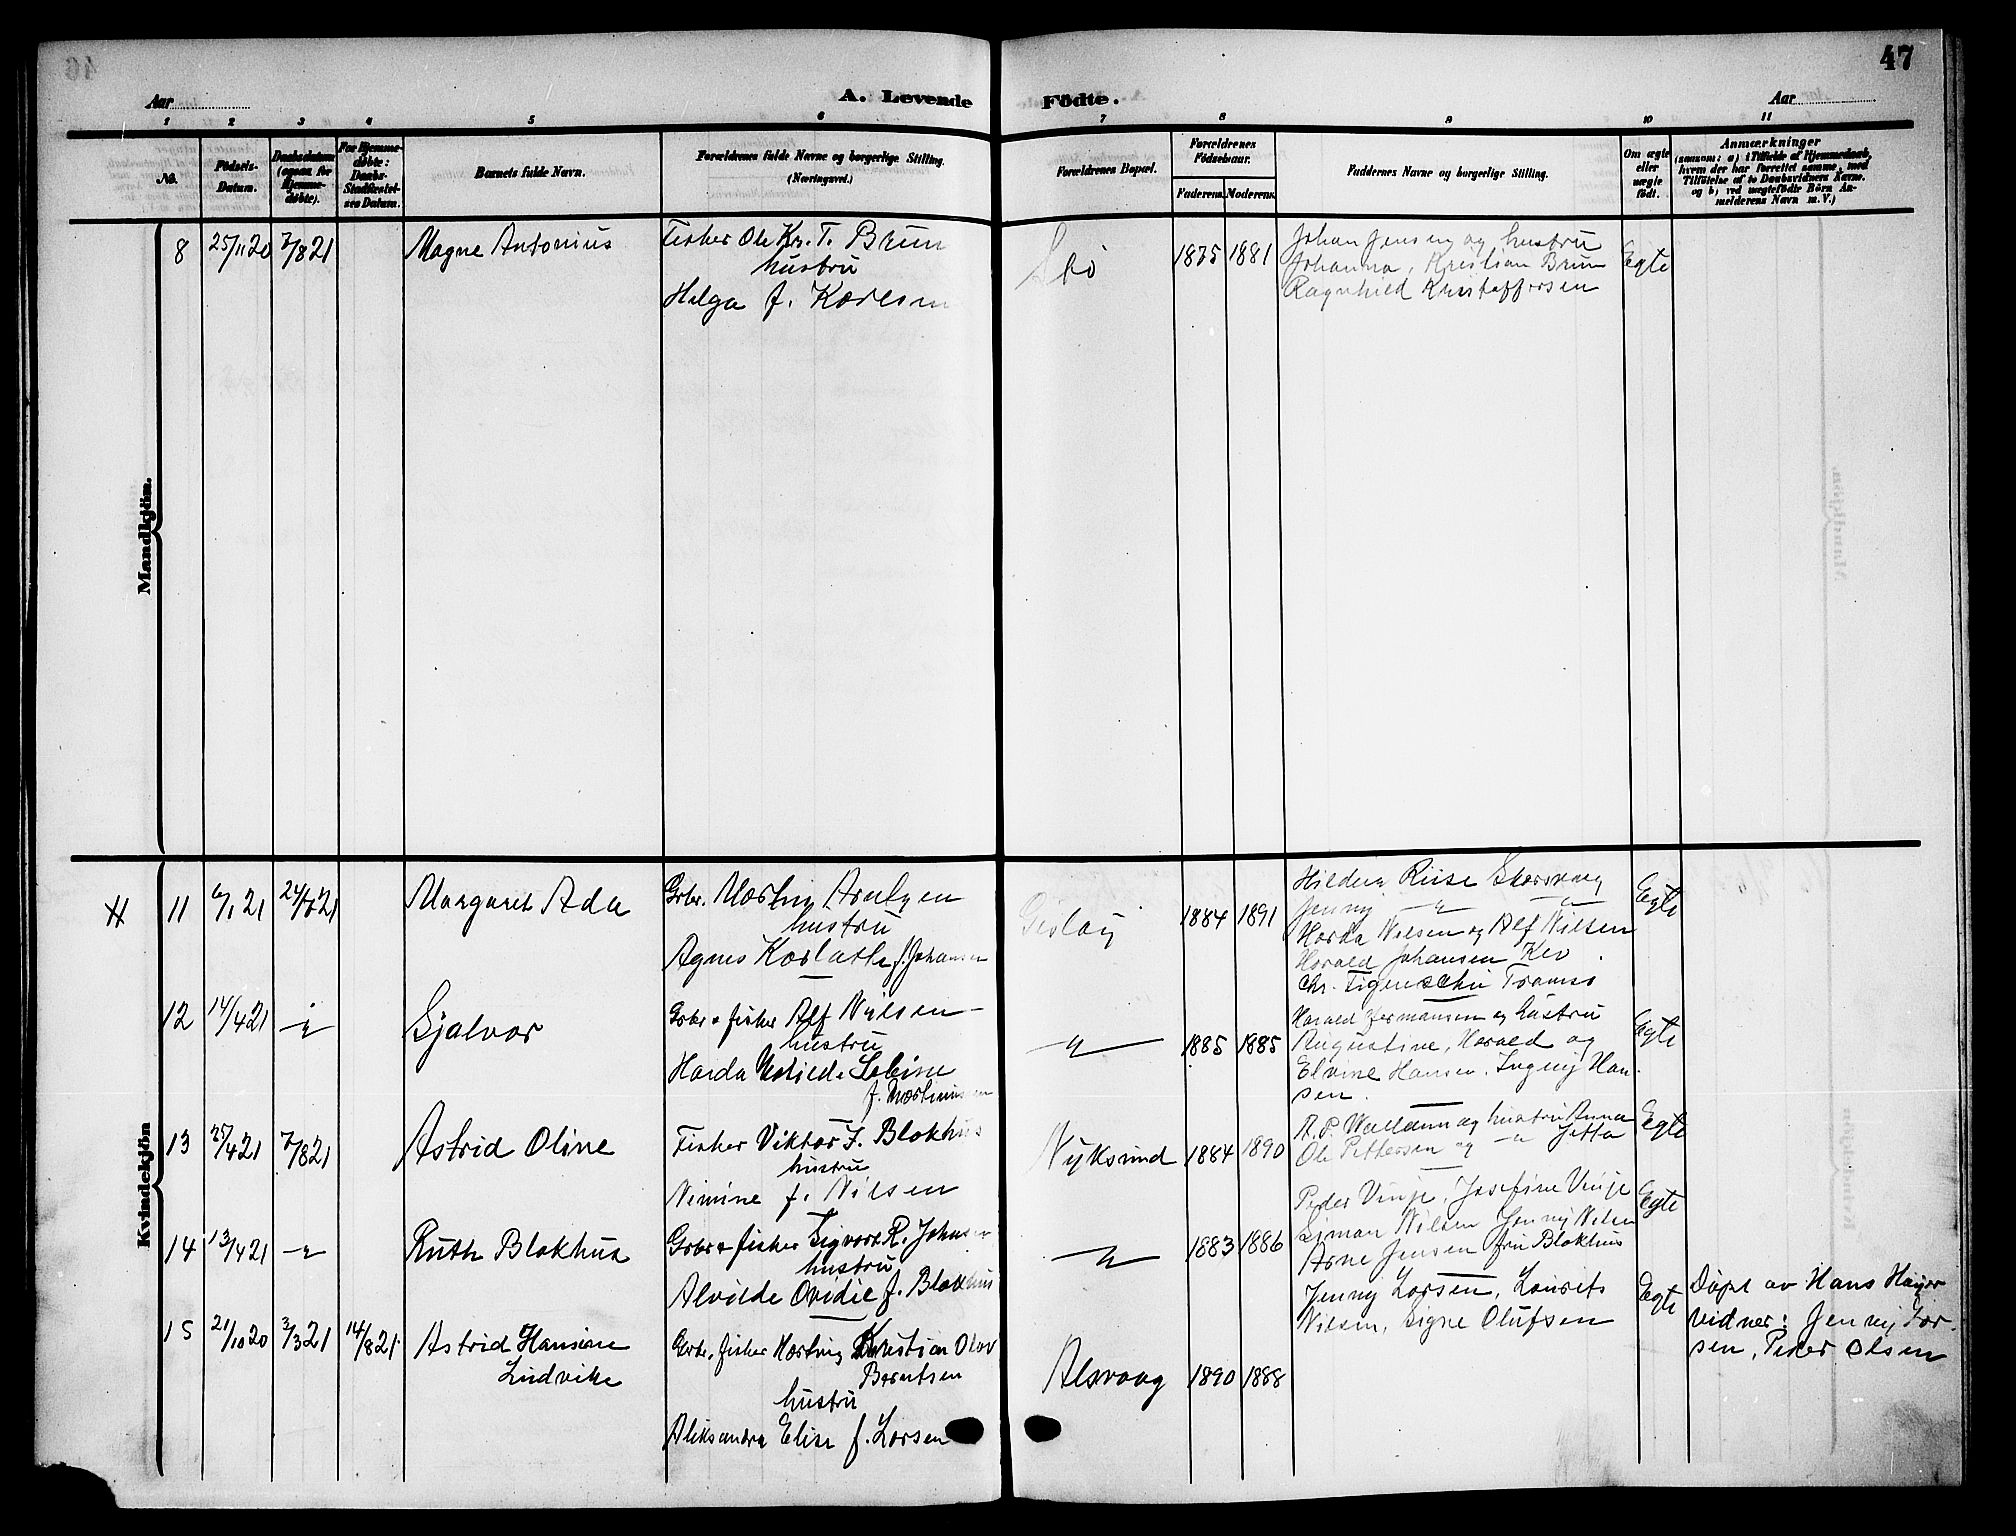 47
Aar
A. Levende Födte.
Aar
1 2 3 4 5 6 7 8 9 10 11
No.
Födsels-Datum.
Daabsdatum (ogsaa for Hjemmedøbte).
For Hjemmedøbte: Daabs-Stadfæstelses Datum.
Barnets fulde Navn.
Forældrenes fulde Navne og borgerlige Stilling.
(Næringsvei.)
Forældrenes Bopæl.
Forældrenes Födselsaar.
Faderens. Moderens.
Faddernes Navne og borgerlige Stilling.
Om ægte eller uægte födt.
Anmærkninger
(saasom: a) i Tilfælde af Hjemmedaab,
hvem der har forrettet samme, med
Tilföielse af to Daabsvidners Navne.
og b) ved uægtefödte Börn An-
melderens Navn m. V.)
Mandkjön.
8 25/11 20 7/8 21 Magne Antonius
Fisker Ole Kr. T. Brun
hustru
Helga f. Karlsen
Stö 1875 1881
Johan Jensen og hustru
Johanna, Kristian Brun
Ragnhild Kristoffersen
Egte
Kvindekjön
11 6/1 21 24/7 21 Margaret Ada
Grbr. Martin Arntzen
hustru
Agnes f. Johansen
Gisløy 1884 1891
Riise Skorvaag
Jenny — " — "
Harda Nilsen og Alf Nilsen
Harald Johansen
Chr. Tromsø
Egte
12 14/4 21 — " — Gjalvor
Grbr & fisker Alf Nilsen
hustru
Harda Sabine
f. Martinussen
— " — 1885 1885
Harald Hermansen og hustru
Augustine, Harald og
Elvine Hansen, Ingvij Han-
sen.
Egte
13 25/4 21 7/8 21 Astrid Oline
Fisker Viktor J. Blokhus
hustru
Nimine f. Nilsen
Nyksund 1884 1890
A. P. Wallann og hustru Anna
Ole Pettersen og — " Jetta
Egte
14 13/4 21 — " — Ruth Blokhus
Grbr & fisker Sigvart R. Johnsen
hustru
Alvilde Ovidie f. Blokhus
— " — 1883 1886
Peder Vinje, Josefine Vinje
Simon Nilsen Jenny Nilsen
Arne Jensen fru Blokhus
Egte
15 21/10 20 3/3 21 14/8 21 Astrid Hansine
Ludvike
Grbr. fisker Kristian Olav
Berntsen
hustru
Aleksandra Elise f. Larsen
Alsvaag 1890 1888
Jenny Larsen, Laurits
Nilsen, Signe Olufsen
Egte
Døpt av Hans
vidner: Jenny Lar-
sen, Peder Olsen